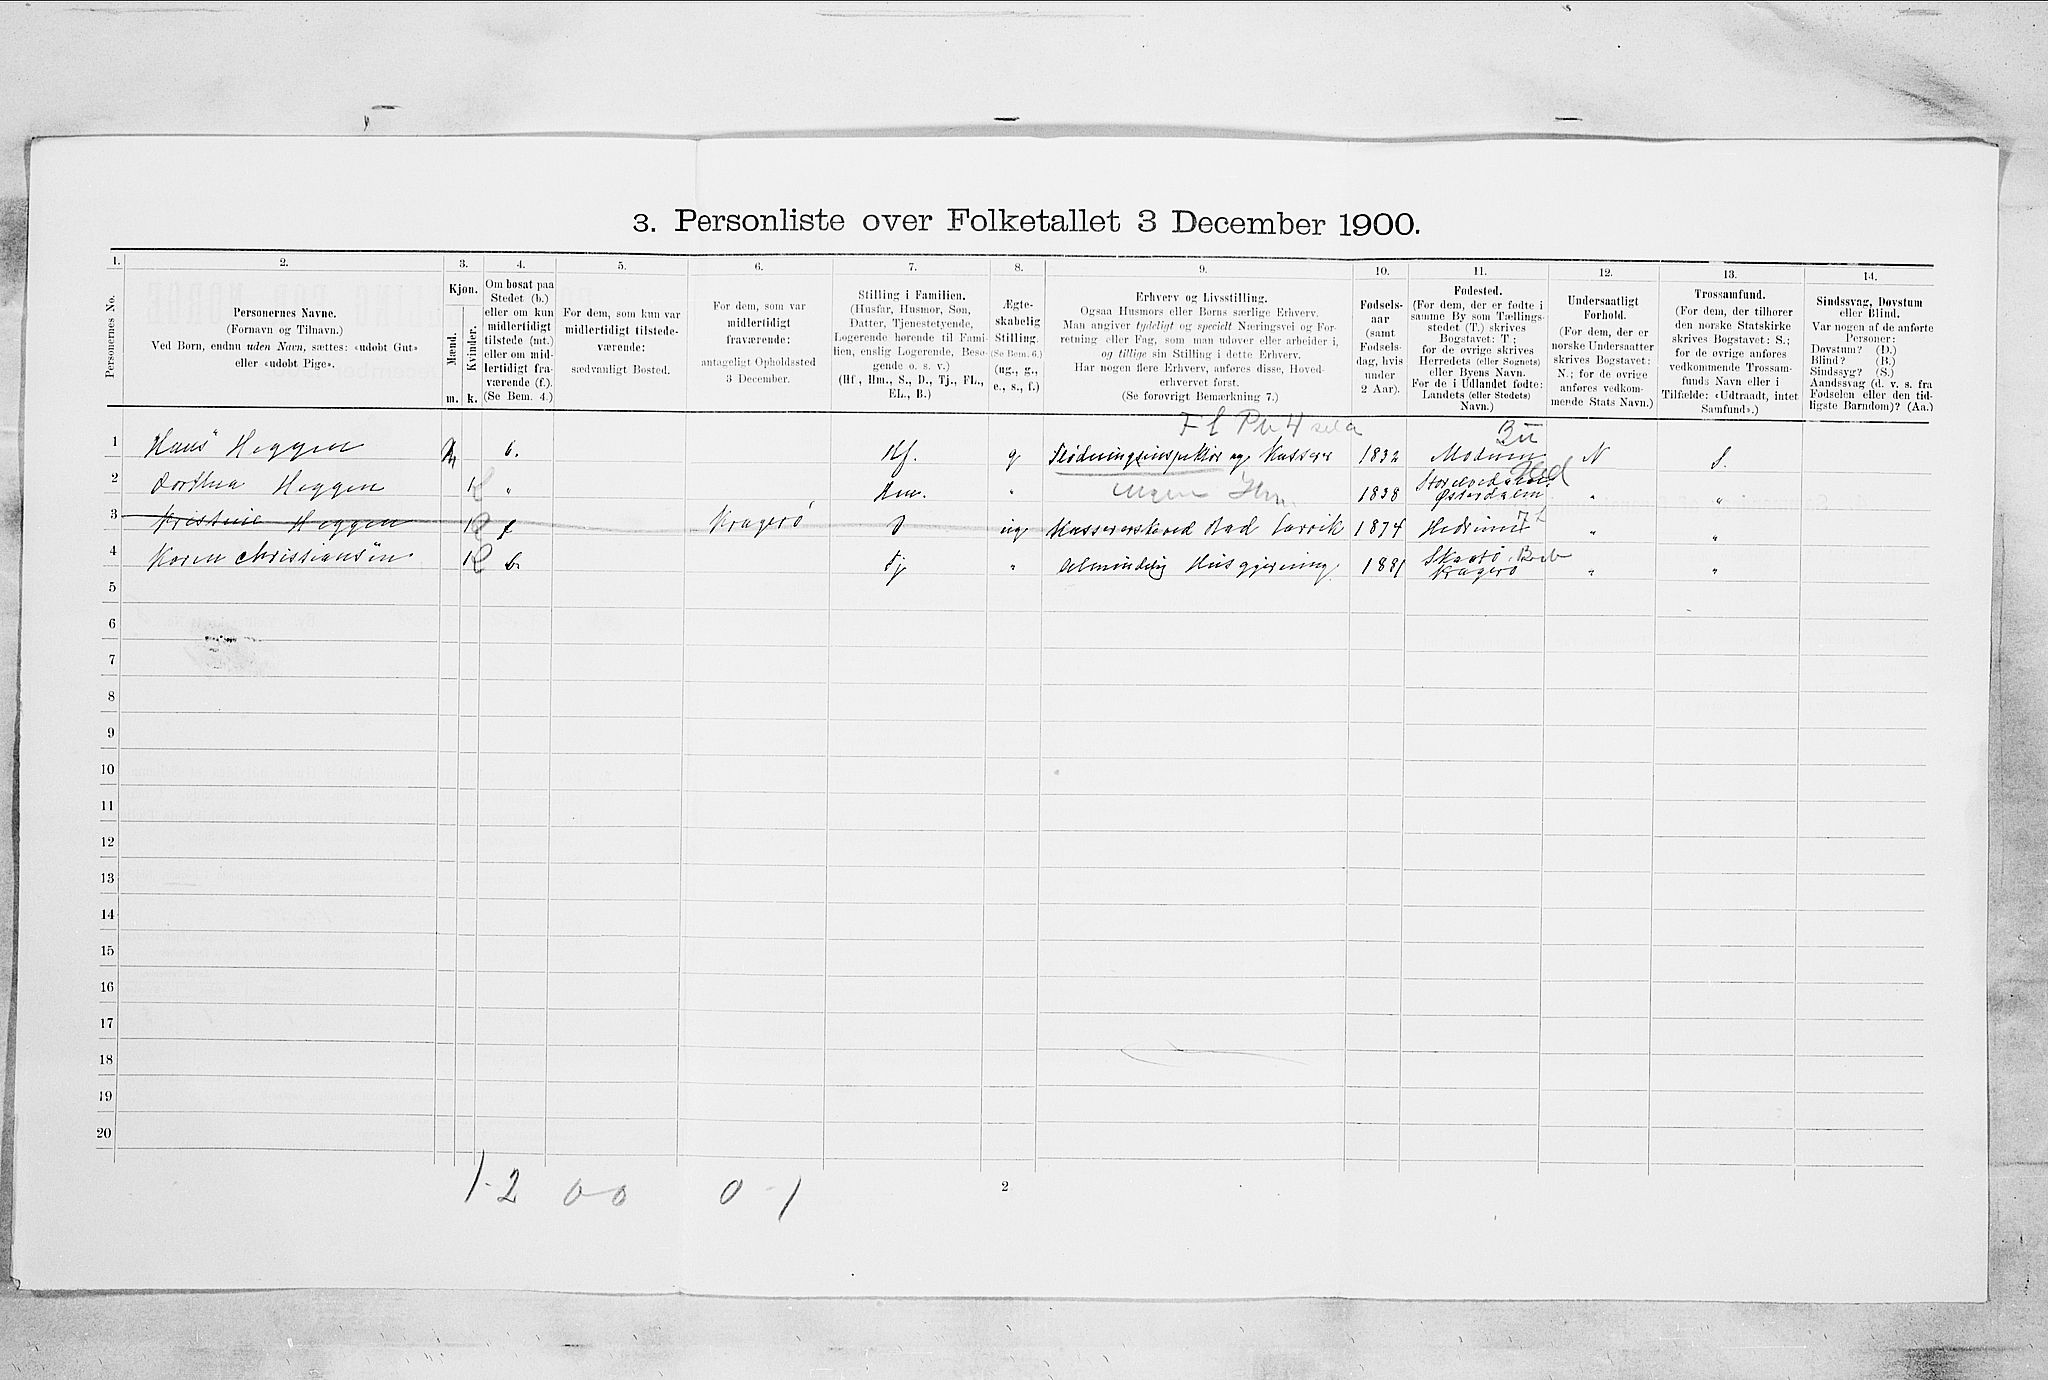 3. Personliste over Folketallet 3 December 1900.
1. 2. 3. 4. 5. 6. 7. 8. 9. 10. 11. 12. 13. 14.
Personernes No.
Personernes Navne.
(Fornavn og Tilnavn.)
Ved Børn, endnu uden Navn, sættes: «udøbt Gut»
eller «udøbt Pige».
Kjøn.
Mænd.
Kvinder.
m. k.
Om bosat paa
Stedet (b.)
eller om kun
midlertidigt
tilstede (mt.)
eller om mid-
lertidigt fra-
værende (f.).
(Se Bem. 4.)
For dem, som kun var
midlertidigt tilstede-
værende:
sædvanligt Bosted.
For dem, som var
midlertidigt
fraværende:
antageligt Opholdssted
3 December.
Stilling i Familien.
(Husfar, Husmor, Søn,
Datter, Tjenestetyende,
Logerende hørende til Fami-
lien, enslig Logerende, Besø-
gende o. s. v.)
(Hf., Hm., S., D., Tj., FL.,
EL., B.)
Ægte-
skabelig
Stilling.
(Se Bem. 6.)
(ug., g.,
e., s., f.)
Erhverv og Livsstilling.
Ogsaa Husmors eller Børns særlige Erhverv.
Man angiver tydeligt og specielt Næringsvei og For-
retning eller Fag, som man udøver eller arbeider i,
og tillige sin Stilling i dette Erhverv.
Har nogen flere Erhverv, anføres disse, Hoved-
erhvervet først.
(Se forøvrigt Bemærkning 7.)
Fødsels-
aar
(samt
Fødsels-
dag, hvis
under
2 Aar).
Fødested.
(For dem, der er fødte i
samme By som Tællings-
stedet (T.) skrives
Bogstavet: T;
for de øvrige skrives
Herredets (eller Sognets)
eller Byens Navn.
For de i Udlandet fødte:
Landets (eller Stedets)
Navn.)
Undersaatligt
Forhold.
(For dem, der er
norske Undersaatter
skrives Bogstavet:
N.; for de øvrige
anføres vedkom-
mende Stats Navn.)
Trossamfund.
(For dem, der tilhører
den norske Statskirke
skrives Bogstavet: S.;
for de øvrige anføres
vedkommende Trossam-
funds Navn eller i
Tilfælde: «Udtraadt, intet
Samfund».)
Sindssvag, Døvstum
eller Blind.
Var nogen af de anførte
Personer:
Døvstum? (D.)
Blind? (B.)
Sindssyg? (S.)
Aandssvag (d. v. s. fra
Fødselen eller den tid-
ligste Barndom)? (Aa.)
Bu
1 Hans Heggen b. Hf. g og Kasserer 1832 Modum N S.
2 Dorthea Heggen K " Hm. " 1838 Østerdalen Hed " "
3 Kristine Heggen K f Kragerø D ug Bad Larvik 1874 Hedrum " "
4 Karen Christiansen K b. Tj " Almindelig Husgjerning 1881 Skaatø Kragerø " "
5
6
7
8
9
10
11
12
13
14
15
16
17
18
19
20
1-2 0-0 0-1
2